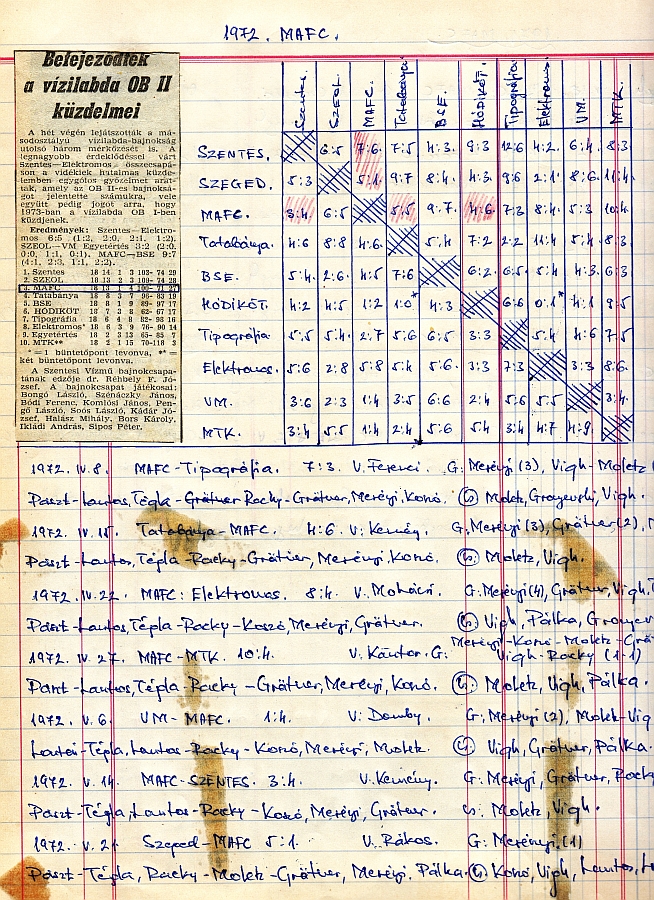 1972. MAFC.
Befejeződtek
a vízilabda OB II
küzdelmei
A hét végén lejátszották a má-
sodosztályú vízilabda-bajnokság
utolsó három mérkőzését is. A
legnagyobb érdeklődéssel várt
Szentes—Elektromos összecsapá-
son a vidékiek hatalmas küzde-
lemben egygólos győzelmet arat-
tak, amely az OB II-es bajnoksá-
got jelentette számukra, vele
együtt pedig jogot arra, hogy
1973-ban a vízilabda OB I-ben
küzdjenek.
Eredmények: Szentes—Elektro-
mos 6:5 (1:2, 2:0, 2:1, 1:2).
SZEOL—VM Egyetértés 3:2 (2:0,
0:0, 1:1, 0:1). MAFC—BSE 9:7
(4:1, 2:3, 1:1, 2:2).
1. Szentes 18 14 1 3 103- 74 29
2. SZEOL 18 13 2 3 109- 74 28
3. MAFC 18 13 1 4 100- 71 27
4. Tatabánya 18 8 3 7 96- 83 19
5. BSE 18 8 1 9 89- 97 17
6. HÓDIKÖT 18 7 3 8 62- 67 17
7. Tipográfia 18 6 4 8 82- 98 16
8. Elektromos* 18 6 3 9 76- 90 14
9. Egyetértés 18 2 3 13 65- 85 7
10. MTK** 18 2 1 15 70-118 3
* = 1 büntetőpont levonva, ** =
két büntetőpont levonva.
A Szentesi Vízmű bajnokcsapa-
tának edzője dr. Réhbely F. Jó-
zsef. A bajnokcsapat játékosai:
Bongó László, Szénáczky János,
Bódi Ferenc, Komlósi János, Pen-
gő László, Soós László, Kádár Jó-
zsef, Halász Mihály, Bors Károly,
Ikládi András, Sipos Péter.
Szentes. SZEOL MAFC. Tatabánya BSE. HÓDIKÖT. Tipográfia Elektromos. VM. MTK.
SZENTES. 6:5 7:6 7:5 4:3. 9:3 12:6 4:2. 6:4. 8:3
SZEGED. 5:3 5:1 9:7 8:4 4:3 9:6 2:1 8:6 11:4
MAFC. 3:4 6:5 5:5 9:7. 4:6 7:3 8:4 5:3 10:4
Tatabánya. 4:6 8:8 4:6. 5:4 7:2 2:2 11:4 5:4 8:3
BSE. 5:4 2:6 4:5 7:6 6:2 6:5 5:4 4:3 6:3
HÓDIKÖT 4:2 4:5 1:2 1:0* 4:3 6:6 0:1* 4:1 9:5
Tipográfia 5:5 5:4 2:7 5:6 6:5 3:3 5:4 4:6 7:5
Elektromos. 5:6 2:8 5:8 5:4 5:6. 3:3 7:3 3:3 8:6
VM. 3:6 2:3 1:4 3:5 6:6 2:4 5:6 5:5 3:4
MTK. 3:4 5:5 1:4 2:4 5:6 5:4 3:4 4:7 4:9
1972. IV. 8. MAFC-Tipográfia. 7:3. V. Ferenci. G: Merényi (3), Vigh-Moletz
Paszt-Lantos, Tégla-Grátner Racky-Grátner, Merényi, Konó. Moletz, Vigh.
1972. IV. 15. Tatabánya-MAFC. 4:6. V: Kemény. G: Merényi (3), Grátner (2),
Paszt-Lantos, Tépla-Racky-Grátner, Merényi, Konó. Moletz, Vigh.
1972. IV. 22. MAFC: Elektromos. 8:4. V. G: Merényi (4), Grátner, Vigh.
Paszt-Lantos, Tépla-Racky-Koszó, Merényi, Grátner. Vigh, Pálka,
Merényi-Konó-Moletz-
1972. IV. 27. MAFC-MTK. 10:4. V. Kántor. G: Vigh-Racky (1-1)
Paszt-Lantos, Tépla-Racky-Grátner, Merényi, Konó. Moletz, Vigh, Pálka.
1972. V. 6. VM-MAFC. 1:4. V: Domby. G: Merényi (2), Moletz-Vig
Lantos-Tépla, Lantos-Racky-Konó, Merényi, Moletz. Vigh, Grátner, Pálka.
1972. V. 14. MAFC-SZENTES. 3:4. V. Kemény. G: Merényi, Grátner, Racky
Paszt-Tégla, Lantos-Racky-Koszó, Merényi, Grátner. Moletz, Vigh.
1972. V. 21. Szeged-MAFC 5:1. V. Rákos. G: Merényi (1)
Paszt-Tépla, Racky-Moletz-Grátner, Merényi, Pálka. Konó, Vigh, Lantos,